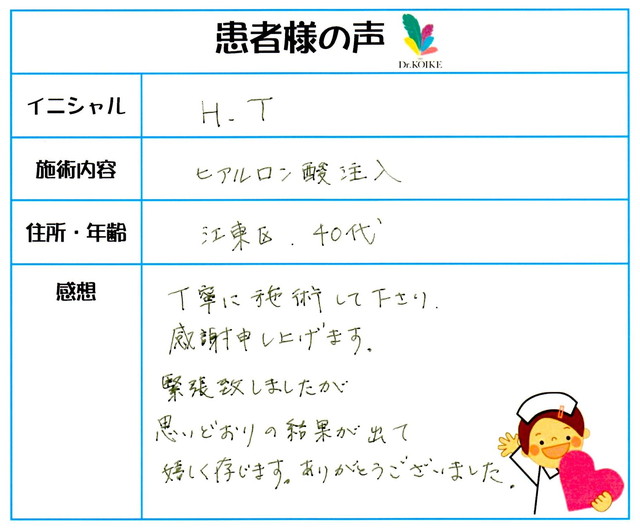 患者様の声
Dr.KOIKE
イニシャル
H.T
施術内容
ヒアルロン酸注入
住所・年齢
江東区.40代
感想
丁寧に施術して下さり.
感謝申し上げます。
緊張致しましたが
思いどおりの結果が出て
嬉しく存じます。ありがとうございました。